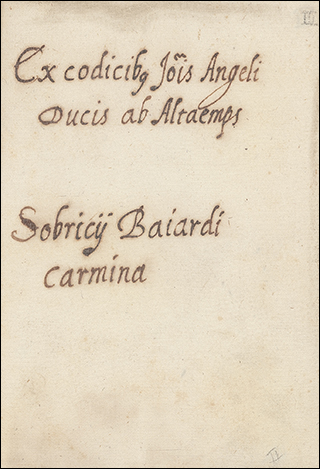 Ex codicibꝫ Jo͠is Angeli
Ducis ab Altaemps
Sobricij Baiardi
Carmina
II